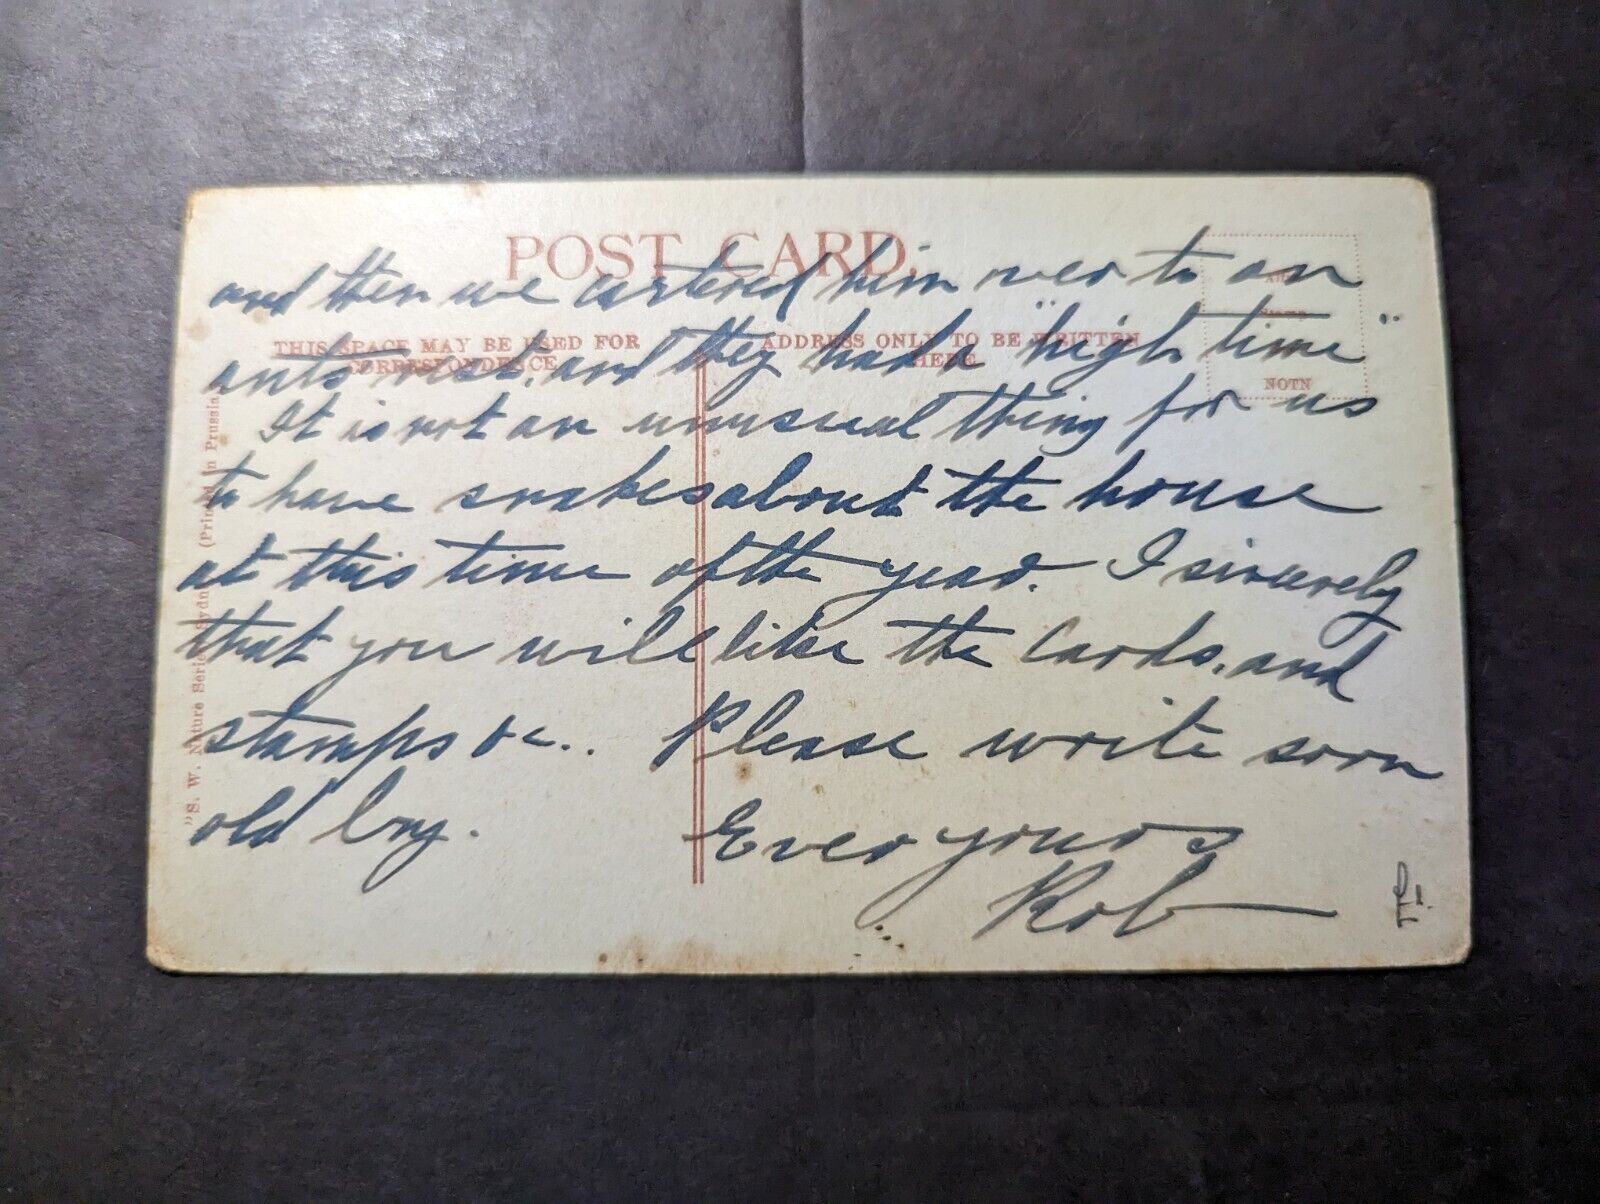 POST CARD.
THIS SPACE MAY BE USED FOR
CORRESPONDENCE
ADDRESS ONLY TO BE WRITTEN
HERE
NOTN
"S. W. Nature Series, Sydney (Printed in Prussia
and then we carted him over to an
ants nest, and they had a "high time"
It is not an unusual thing for us
to have snakes about the house
at this time of the year. I sincerely
that you will like the Cards, and
stamps &c.. Please write soon
old boy.
Ever yours
Rob